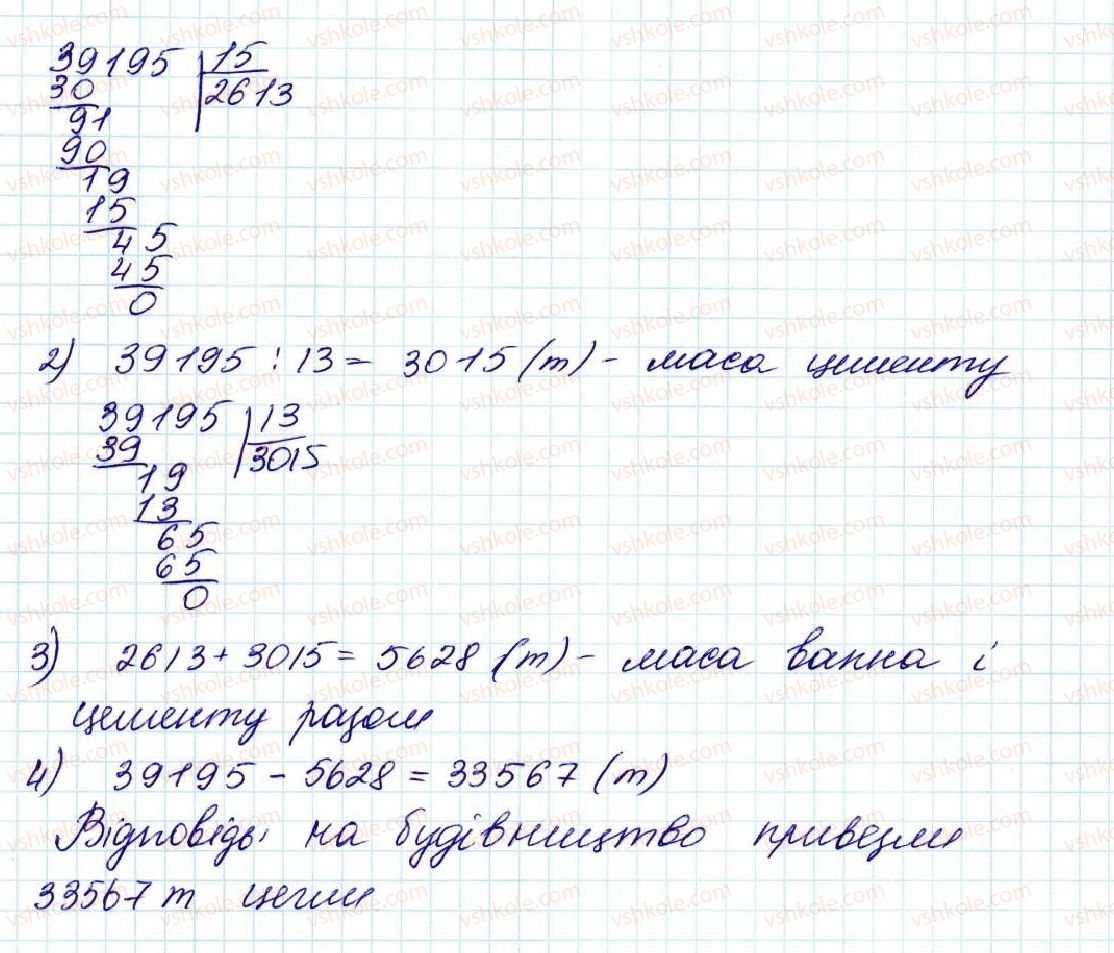 39195 15
30 2613
91
90
19
15
45
45
0
2) 39195 : 13 = 3015 (т) - маса цементу
39195 13
39 3015
19
13
65
65
0
3) 2613 + 3015 = 5628 (т) - маса вапна і
цементу разом
4) 39195 - 5628 = 33567 (т)
Відповідь: на будівництво привезли
33567 т цегли
vshkole.com